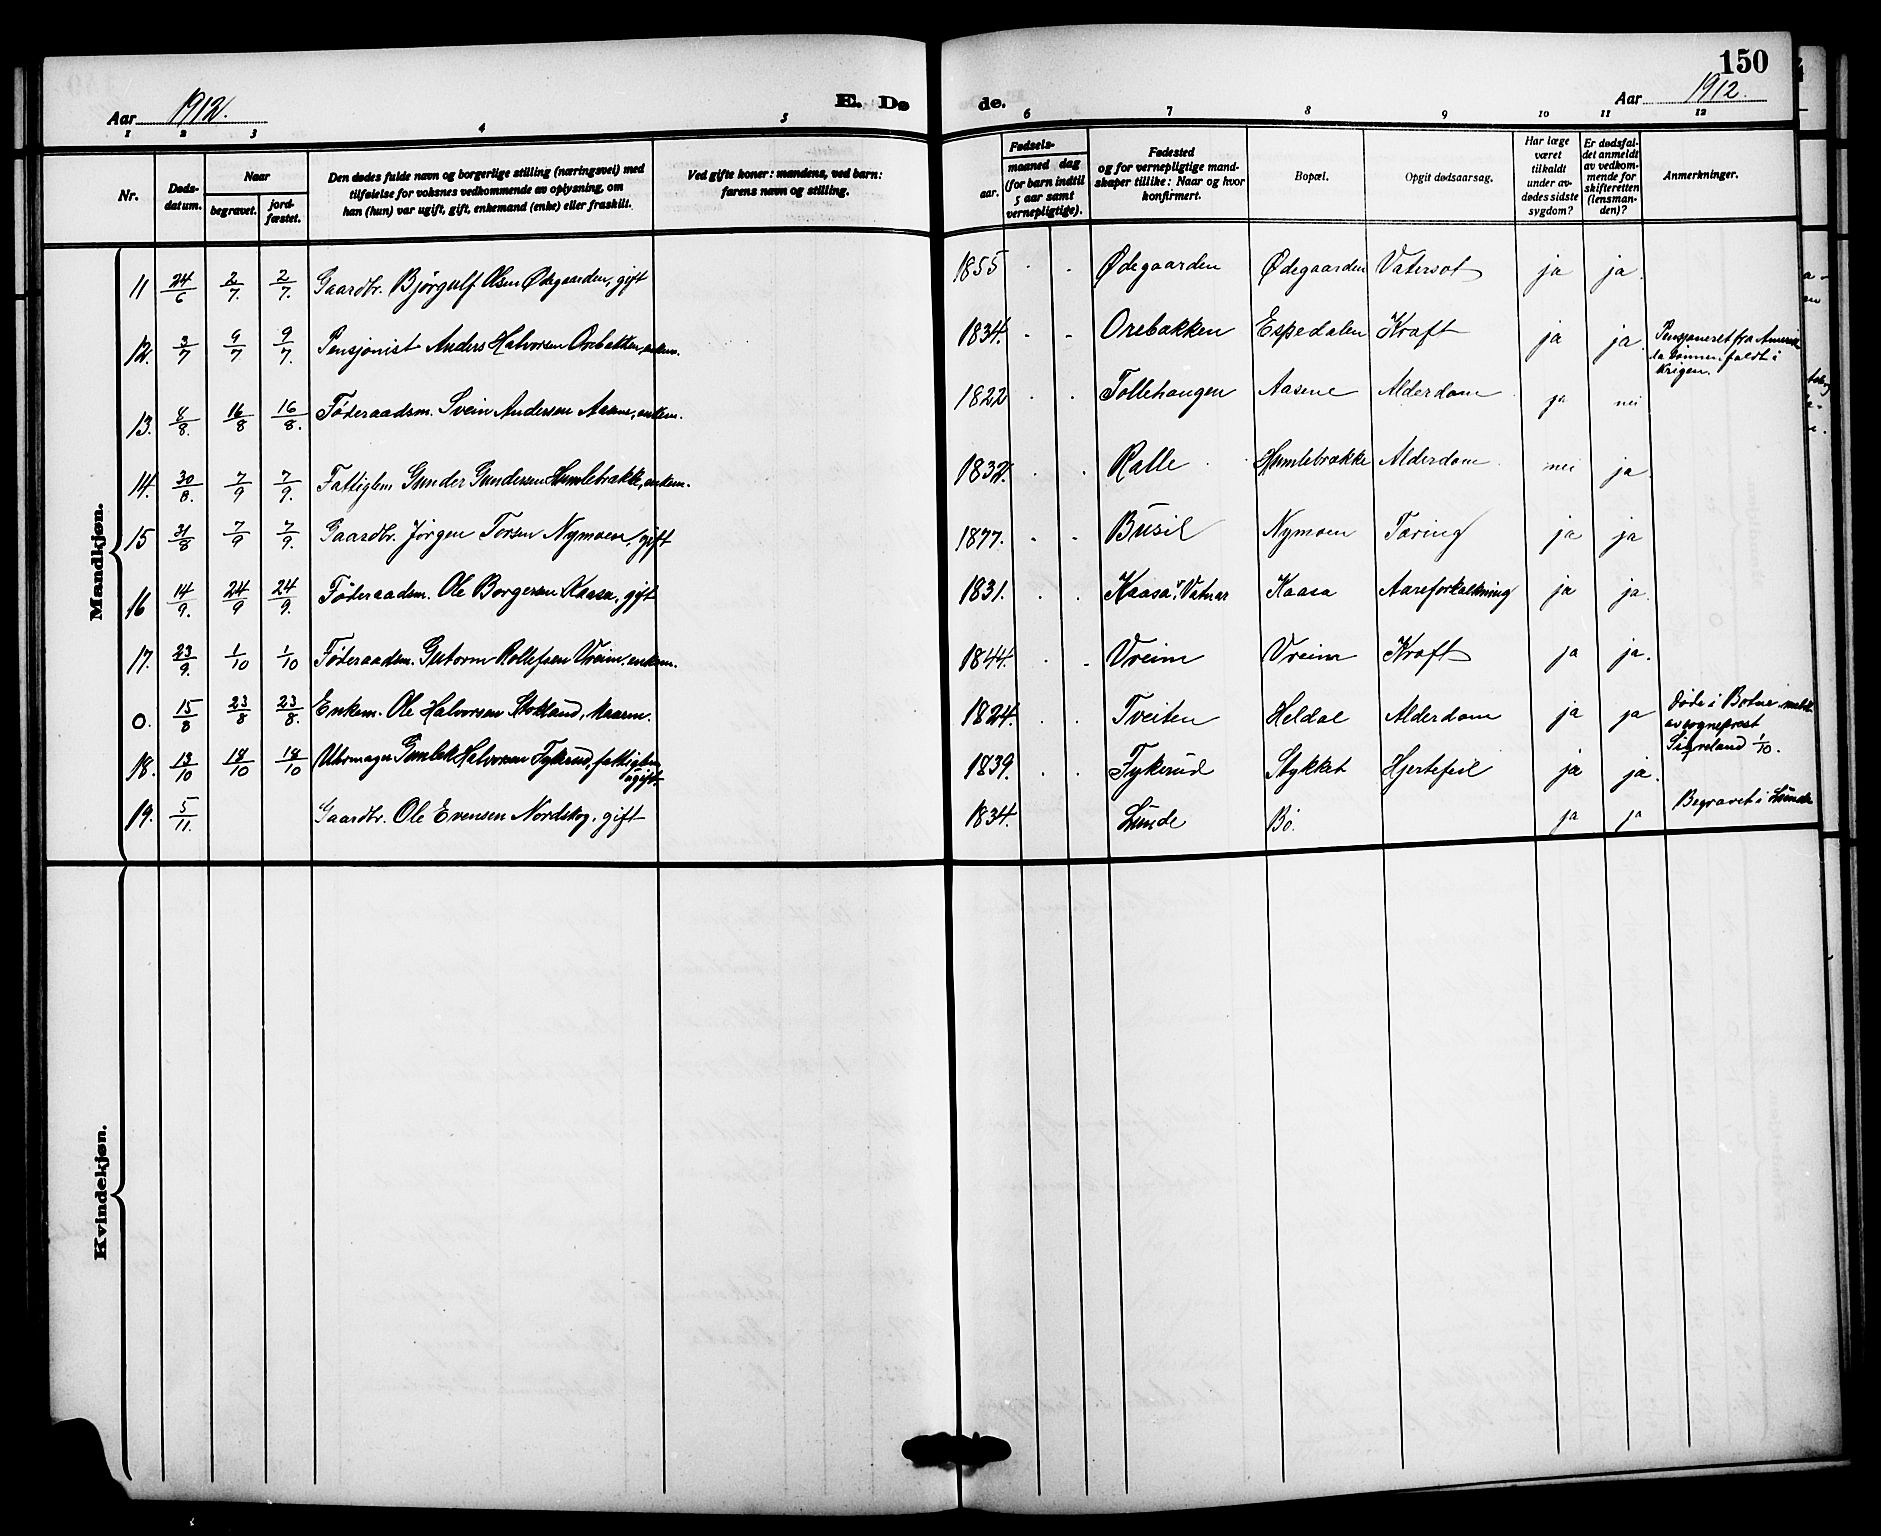 150
Aar 1912.
E. Dø
de.
Aar 1912.
1 2 3 4 5 6 7 8 9 10 11 12
Nr.
Døds-
datum.
Naar
begravet.
jord-
fæstet.
Den dødes fulde navn og borgerlige stilling (næringsvei) med
tilføielse for voksnes vedkommende av oplysning, om
han (hun) var ugift, gift, enkemand (enke) eller fraskilt.
Ved gifte koner: mandens, ved barn:
farens navn og stilling.
Fødsels-
aar.
maaned dag
(for barn indtil
5 aar samt
vernepligtige).
Fødested
og for vernepligtige mand-
skaper tillike: Naar og hvor
konfirmert.
Bopæl.
Opgit dødsaarsag.
Har læge
været
tilkaldt
under av-
dødes sidste
sygdom?
Er dødsfal-
det anmeldt
av vedkom-
mende for
skifteretten
(lensman-
den)?
Anmerkninger.
Mandkjøn.
11 24/6 2/7 2/7. Gaardbr. Bjørgulf Olsen Ødegaarden, gift 1855 Ødegaarden Ødegaarden Vatersot ja ja.
12. 3/7 9/7 9/7. Pensjonist Anders Halvorsen Orebakken, enkem. 1834. Orebakken Espedalen Kræft ja ja. Pensjoneret fra Amerik
faldt i
krigen.
13. 8/8. 16/8 16/8. Føderaadsm. Svein Andersen Aasene, enkem. 1822 Tollehaugen Aasene Alderdom ja nei
14. 30/8. 7/9 7/9. Fattiglem Gunder Gundersen Humlebrække, enkem. 1832. Ralle Humlebrække Alderdom nei ja.
15 31/8 7/9 7/9. Gaardbr. Jørgen Torsen Nymoen, gift 1877. Busil Nymoen Tæring ja ja
16 14/9. 24/9 24/9. Føderaadsm. Ole Borgersen Kaasa, gift 1831. Kaasa v. Vatnar Kaasa Aareforkalkning ja ja.
17. 23/9. 1/10 1/10 Føderaadsm. Gutorm Rollefsen Vreim, enkem. 1844. Vreim Vreim Kræft ja ja.
0. 15/8 23/8 23/8. Enkem. Ole Halvorsen Stokland, 1824. Tveiten Heldal Alderdom ja ja Døde i
av sogneprest
1/10.
18. 13/10 18/10 18/10 Uhrmager Gunlek Halvorsen Tykerud, fattiglem,
ugift. 1839. Tykerud Stykket Hjertefeil ja ja.
19. 5/11. Gaardbr. Ole Evensen Nordskog, gift 1834. Lunde Bø. ja ja Begravet i Lunde
Kvindekjøn.